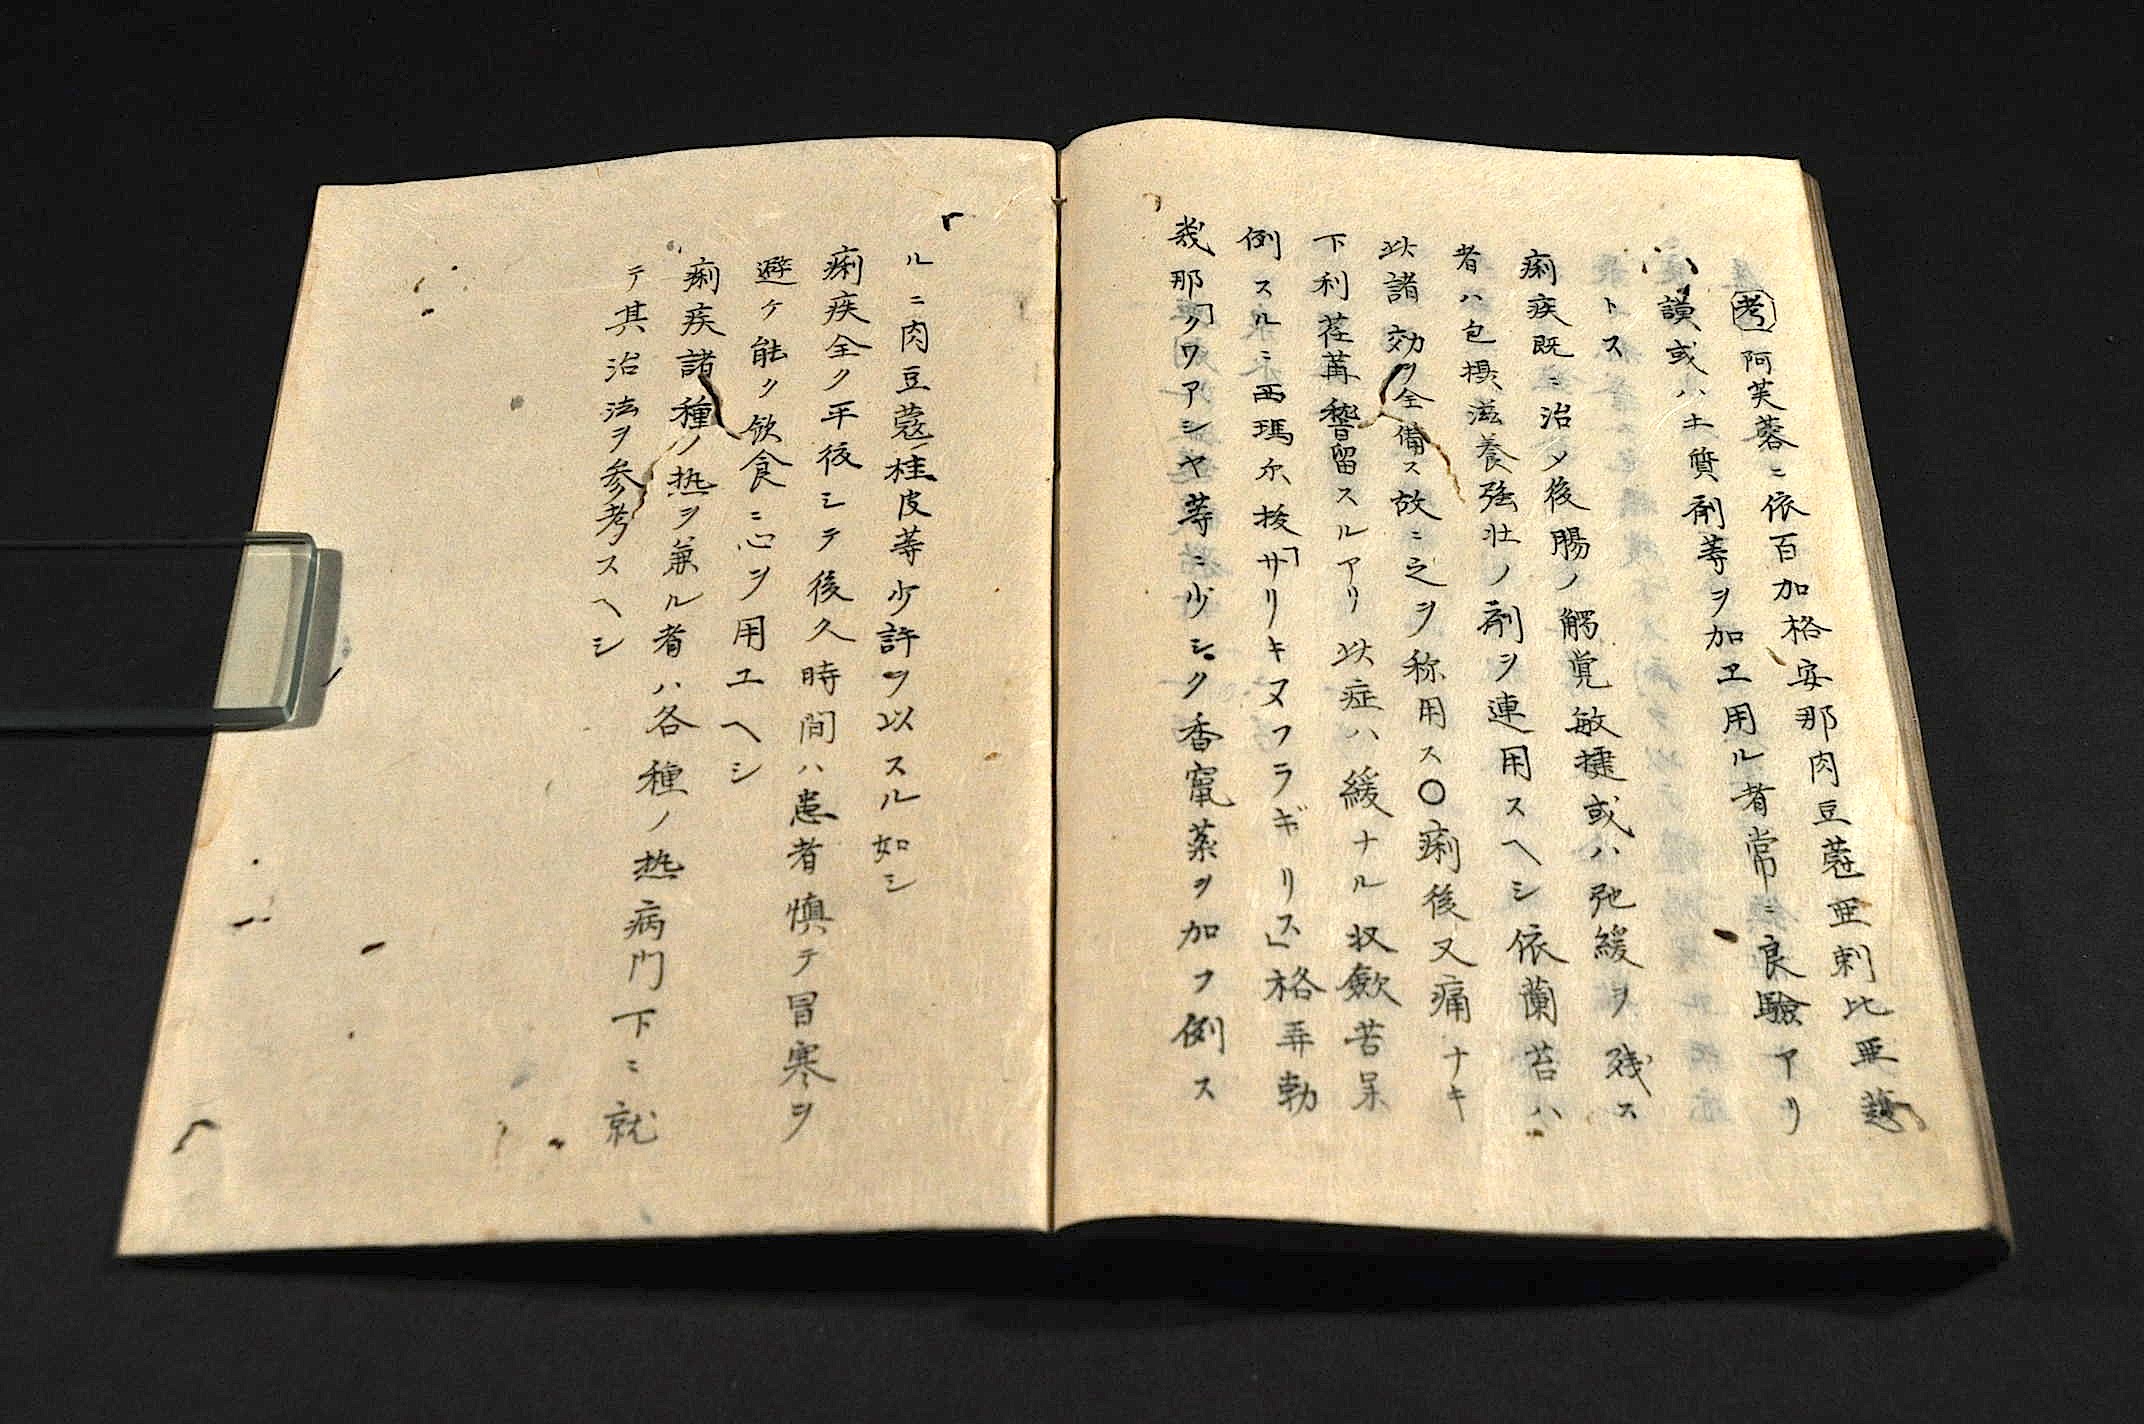 考 阿芙蓉ニ依百加格安那肉豆蔲亜剌比亜護
謨或ハ土質剤等ヲ加ヱ用ル者常ニ良驗アリ
トス
痢疾既ニ治メ後腸ノ觸覚敏捷或ハ弛緩ヲ残ス
者ハ包摂滋養強壮ノ剤ヲ連用スヘシ依蘭苔ハ
此諸効ヲ全備ス故ニ之ヲ称用ス〇痢後又痛ナキ
下利荏苒稽留スルアリ此症ハ緩ナル収斂苦味
例スルニ西瑪尔抜「サリキヌフラギリス」格弄勃
幾那「クワアシヤ等ニ少シク香竄薬ヲ加フ例ス
ルニ肉豆蔲桂皮等少許ヲ以スル如シ
痢疾全ク平復シテ後久時間ハ患者慎テ冒寒ヲ
避ケ能ク飲食ニ心ヲ用ユヘシ
痢疾諸種ノ热ヲ兼ル者ハ各種ノ热病門下ニ就
テ其治法ヲ参考スヘシ